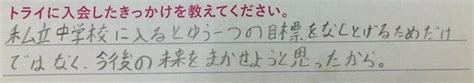 トライに入会したきっかけを教えてください。
私立中学校に入るとゆう一つの目標をなしとげるためだけ
ではなく、今後の未来をまかせようと思ったから。